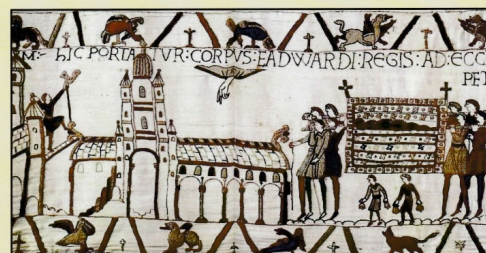 M:- hIC PORTATVR: CORPVS: EADWARDI: REGIS: AD: ECC
PET